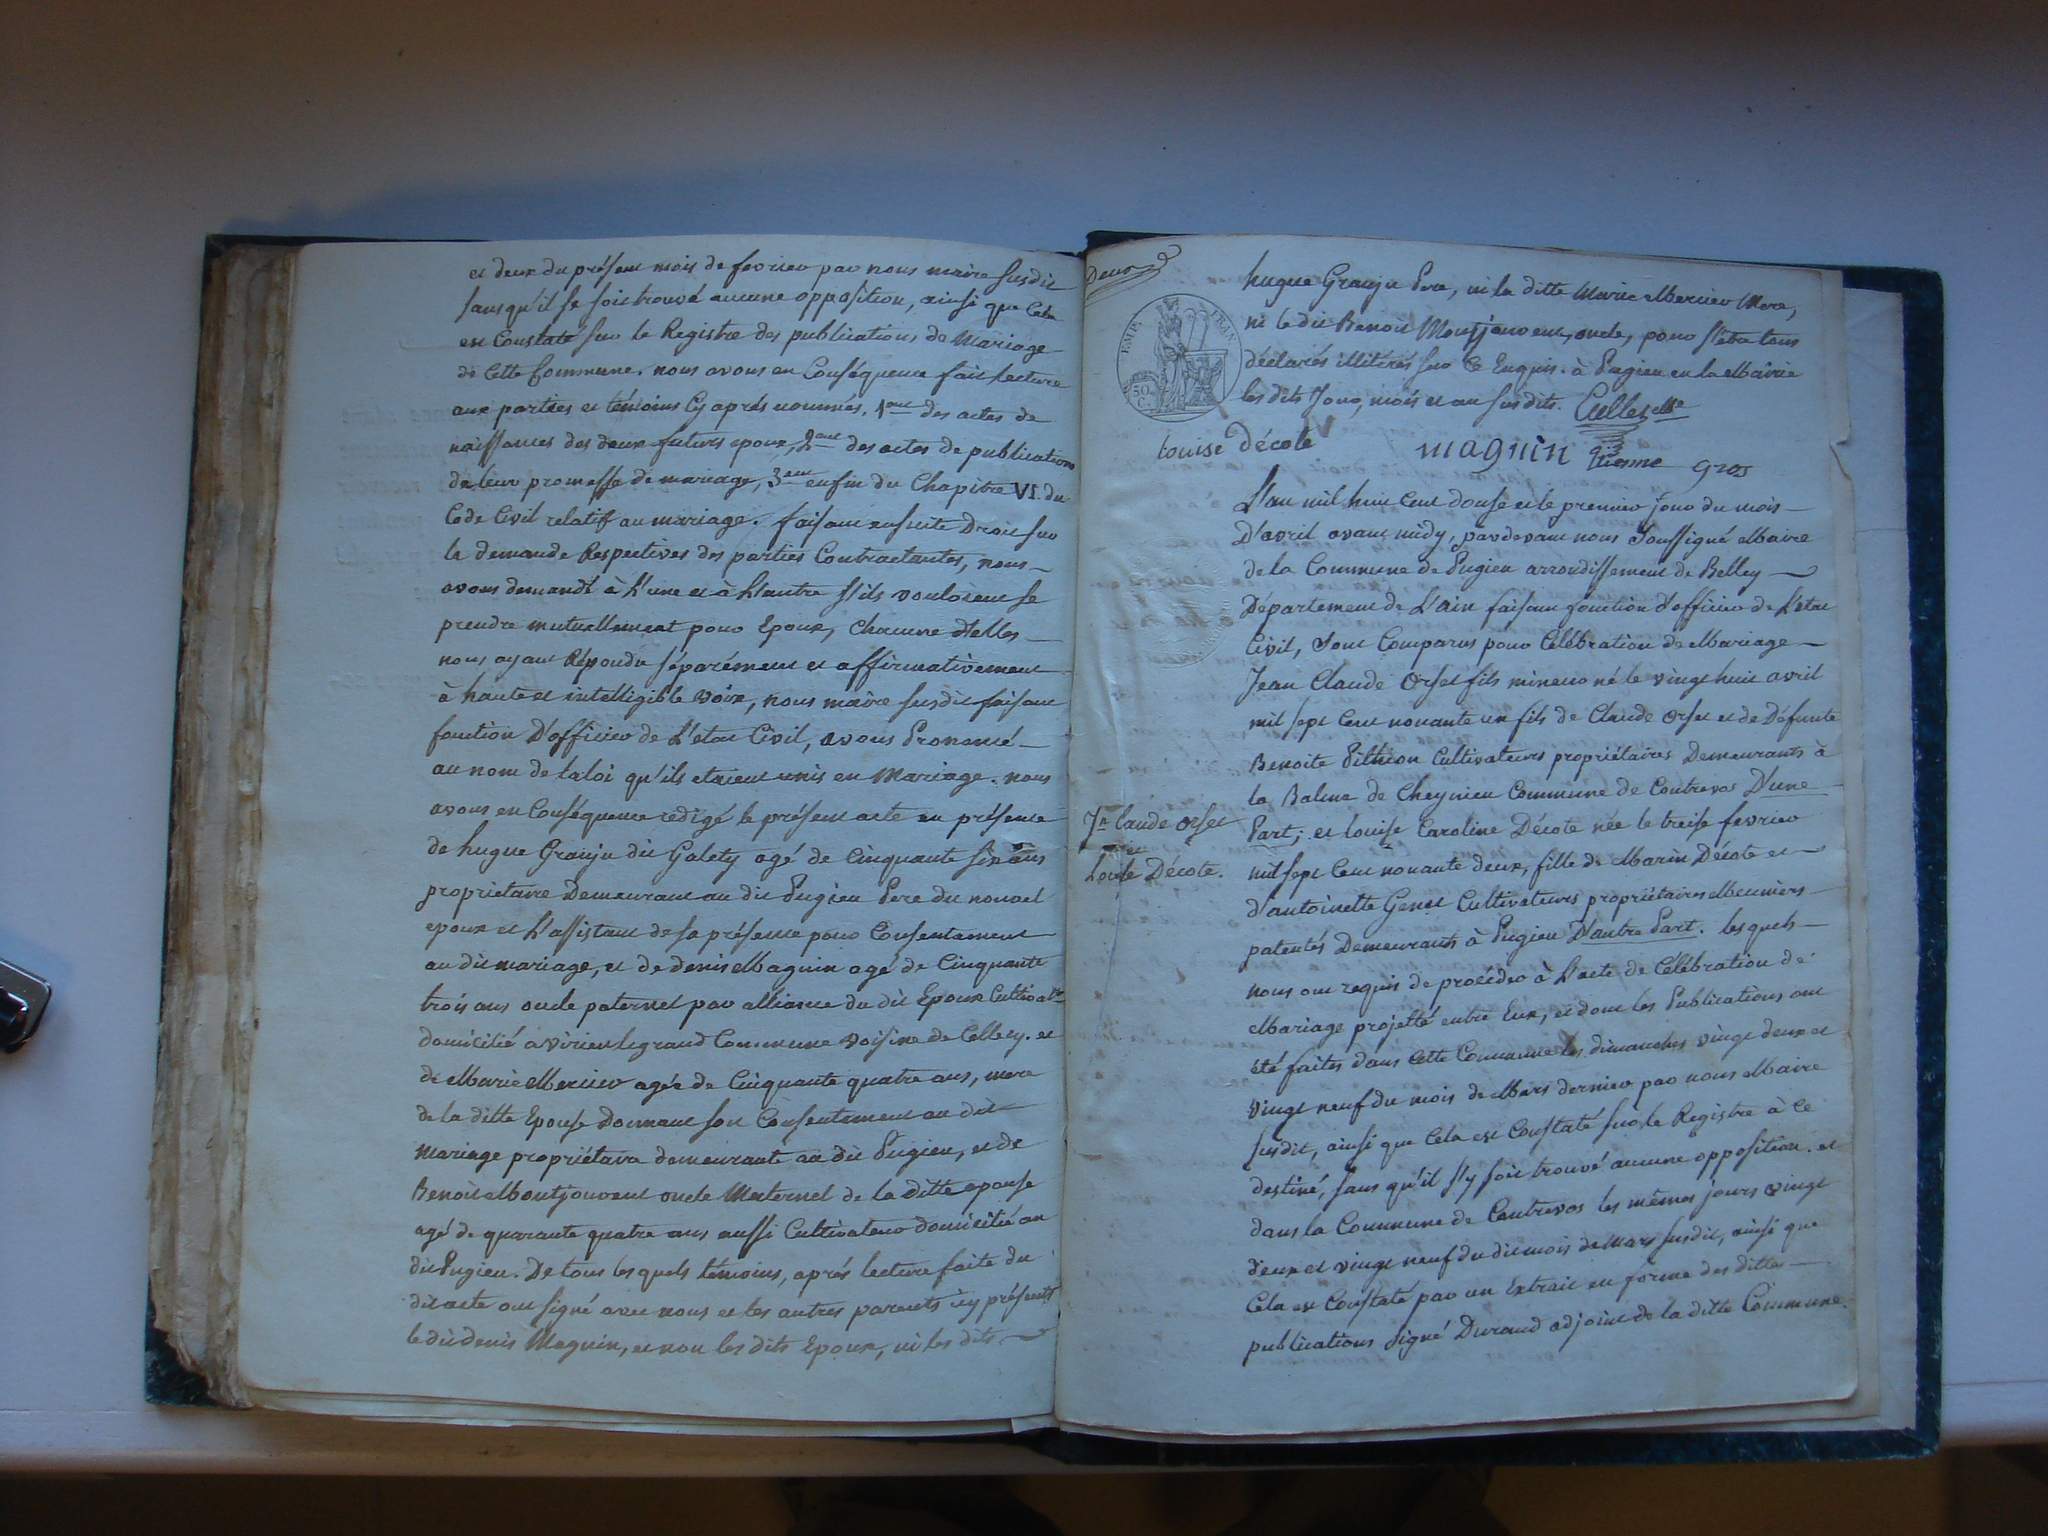 et deux du présent mois de fevrier par nous maire susdit
sans qu'il se soit trouvé aucune opposition, ainsi que Cela
est Constaté sur le Registre des publications de Mariage
de Cette Commune. nous avons en Conséquence fait lecture
aux parties et témoins Cy aprés nommés, 1ent des actes de
naissances des deux futurs epoux, 2ent des actes de publications
de leur promesse de mariage, 3ent enfin du Chapitre VI. du
Code Civil relatif au mariage. faisant ensuite Droit sur
la demande Respectives des parties Contractantes, nous
avons demandé à L'une et à L'autre s'ils vouloient se
prendre mutuellement pour Epoux, Chacune d'elles
nous ayant Répondu séparément et affirmativement
à haute et intelligible voix, nous maire susdit faisant
fonction D'officier de L'etat Civil, avons Prononcé
au nom de la loi qu'ils etaient unis en Mariage. nous
avons en Conséquence redigé le présent acte en présence
de hugue Granju dit Galety agé de Cinquante six ans
propriétaire Demeurant au dit Pugieu Pere du nouvel
epoux et L'assistant de sa présence pour Consentement
au dit mariage, et de denis Magnin agé de Cinquante
trois ans oncle paternel par alliance du dit Epoux Cultivatr
domicilié a virieu legrand Commune voisine de Celle cy. et
de Marie Mercier agée de Cinquante quatre ans, mere
de la ditte Epouse Donnant son Consentement au dit
Mariage propriétaire demeurante au dit Pugieu, et de
Benoit Montjouvent oncle Maternel de la ditte epouse
agé de quarante quatre ans aussi Cultivateur domicilié au
dit Pugieu. De tous les quels témoins, aprés lecture faite du
dit acte ont signé avec nous et les autres parents icy présents
le dit denis Magnin, et non les dits Epoux, ni les dits
Deux
hugue Granju Pere, ni la ditte Marie Mercier Mere,
ni le dit Benoit Montjouvent, oncle, pour s'etre tous
déclarés illitérés sur Ce Enquis. à Pugieu en la Mairie
les dits Jour, mois et an susdits.
EMP. FRAN.
50 C.
louise décote magnin etienne gros
L'an mil huit Cent douse et le premier jour du mois
D'avril avant midy, pardevant nous Soussigné Maire
de la Commune de Pugieu arrondissement de Belley
Département de L'ain faisant fonction d'officier de L'etat
Civil, Sont Comparus pour Célébration de Mariage
Jean Claude Orset fils mineur né le vingt huit avril
mil sept Cent nonante un fils de Claude Orset et de Défunte
Benoite Pithion Cultivateurs propriétaires Demeurants à
la Balme de Cheynieu Commune de Contrevos D'une
Jn Claude Orset
et
Louise Décote.
Part; et louise Caroline Décote née le treise fevrier
mil sept Cent nonante deux, fille de Marin Décote et
d'antoinette Genet Cultivateurs propriétaires Meuniers
patentés Demeurants à Pugieu D'autre Part. les quels
nous ont requis de procéder à L'acte de Célébration de
Mariage projetté entre Eux, et dont les Publications ont
été faites dans Cette Commune les dimanches vingt deux et
vingt neuf du mois de Mars dernier par nous Maire
susdit, ainsi que Cela est Constaté sur le Registre à Ce
destiné, sans qu'il s'y soit trouvé aucune opposition. et
dans la Commune de Contrevos les mêmes jours vingt
deux et vingt neuf du dit mois de Mars susdit, ainsi que
Cela est Constaté par un Extrait en forme des dittes
publications signé Durand adjoint de la ditte Commune.